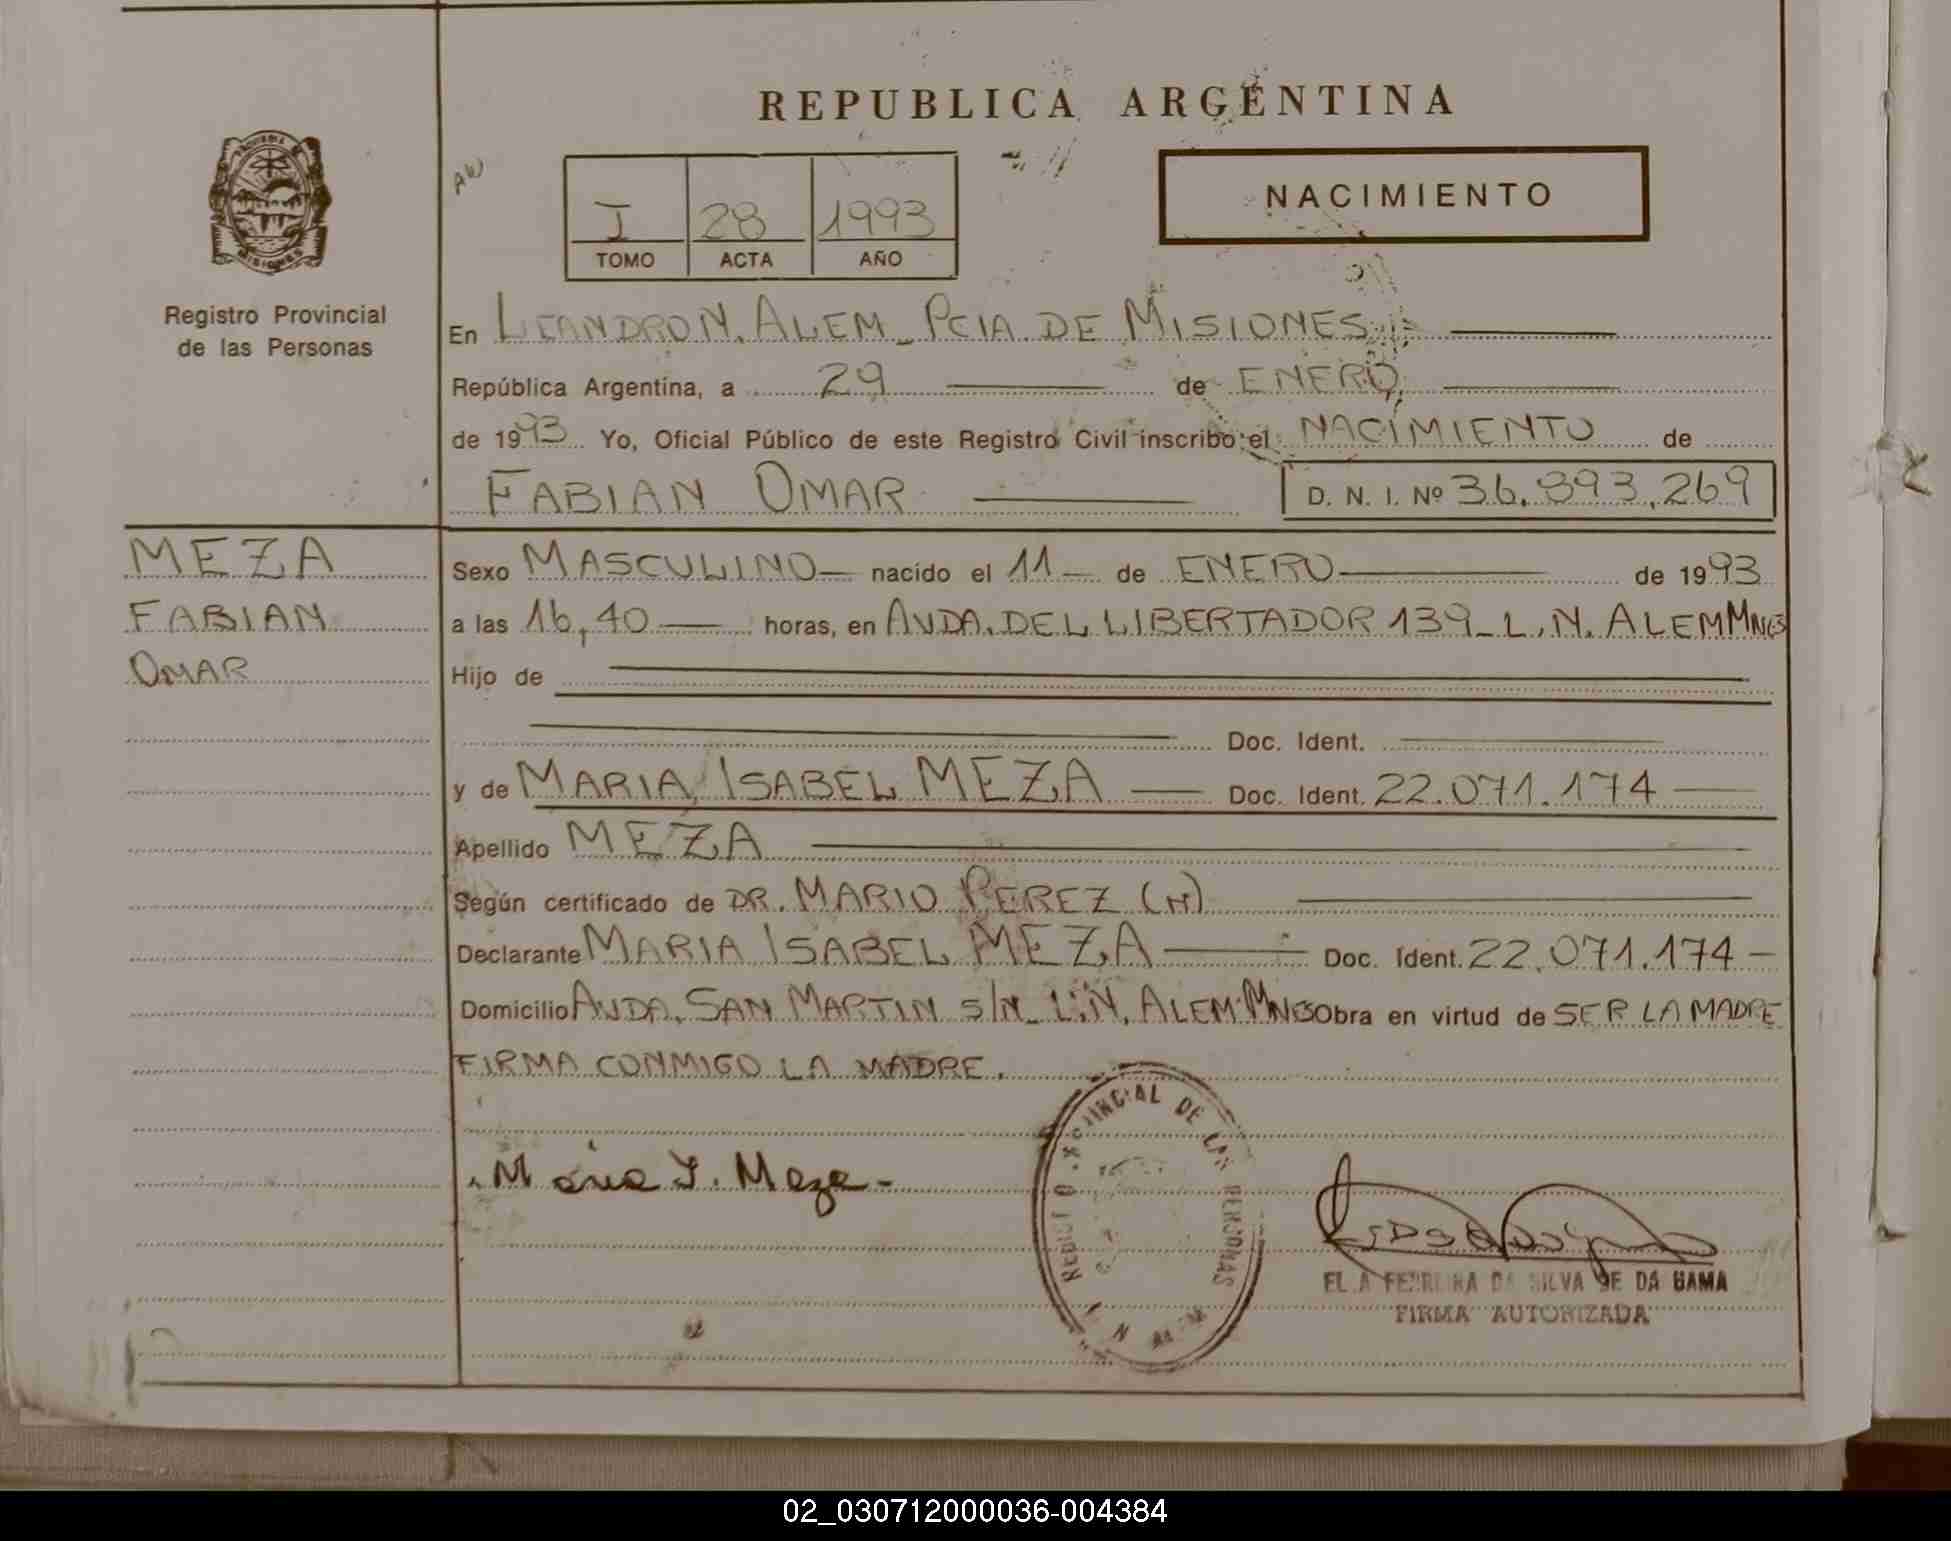 REPUBLICA ARGENTINA
NACIMIENTO
I 28 1993
TOMO ACTA AÑO
MISIONES
Registro Provincial
de las Personas
En LEANDRO N. ALEM_ PCIA. DE MISIONES
República Argentina, a 29 de ENERO
de 1993 Yo, Oficial Público de este Registro Civil inscribo el NACIMIENTO de
FABIAN OMAR D. N. I. Nº 36.893.269
MEZA
FABIAN
OMAR
Sexo MASCULINO nacido el 11 de ENERO de 1993
a las 16,40 horas, en AVDA. DEL LIBERTADOR 139_ L. N. ALEM MNES
Hijo de
Doc. Ident.
y de MARIA ISABEL MEZA Doc. Ident. 22.071.174
Apellido MEZA
Según certificado de DR. MARIO PEREZ (H)
Declarante MARIA ISABEL MEZA Doc. Ident. 22.071.174
Domicilio AVDA. SAN MARTIN S/N_ L. N. ALEM MNES Obra en virtud de SER LA MADRE
FIRMA CONMIGO LA MADRE.
Maria I. Meza
DE LAS PERSONAS
FERREIRA DA SILVA DE DA GAMA
FIRMA AUTORIZADA
02_030712000036-004384